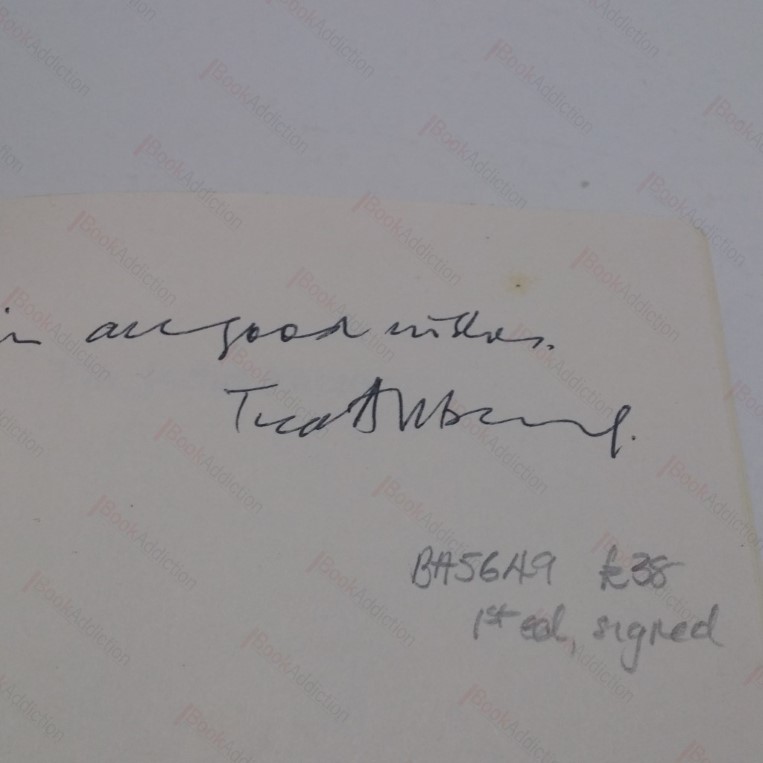 all good wishes.
BA5649 £38
1st ed, signed
BookAddiction